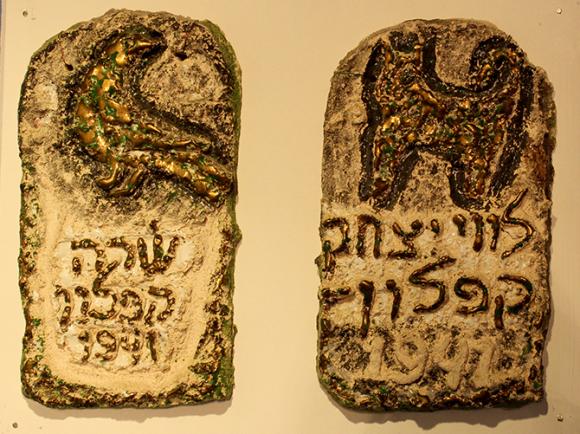 שרה
קפלון
1941
לוי יצחק
קפלון-
1941